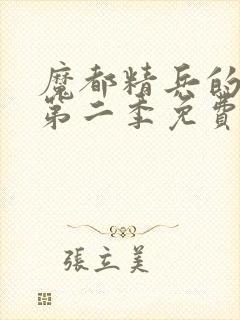 魔都精兵的
第二季免費
張立美